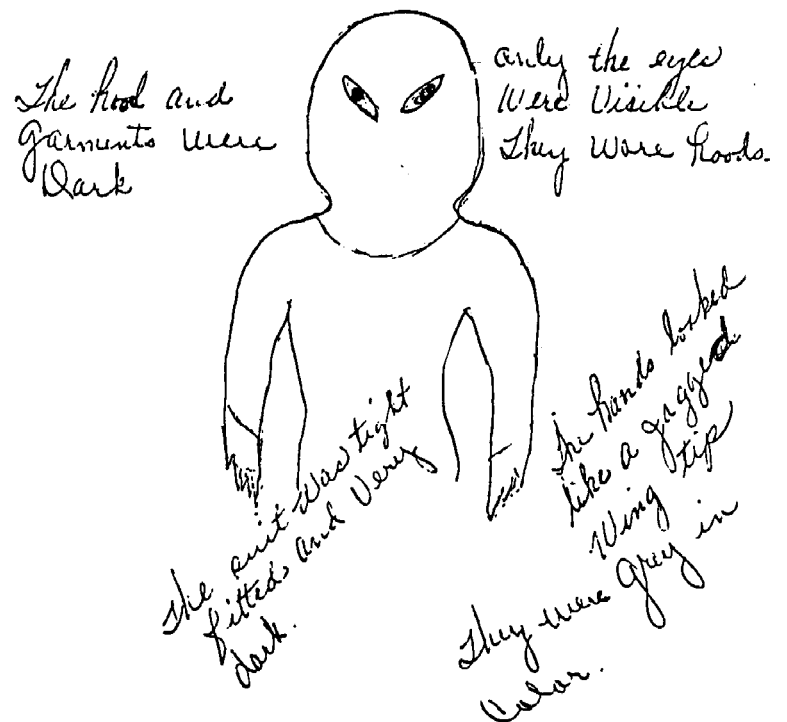 The hood and
Garments were
Dark
only the eyes
Were Visible
They Wore hoods.
The suit was tight
fitted and Very
dark.
The hands looked
like a jagged
Wing tip
They were Grey in
Color.